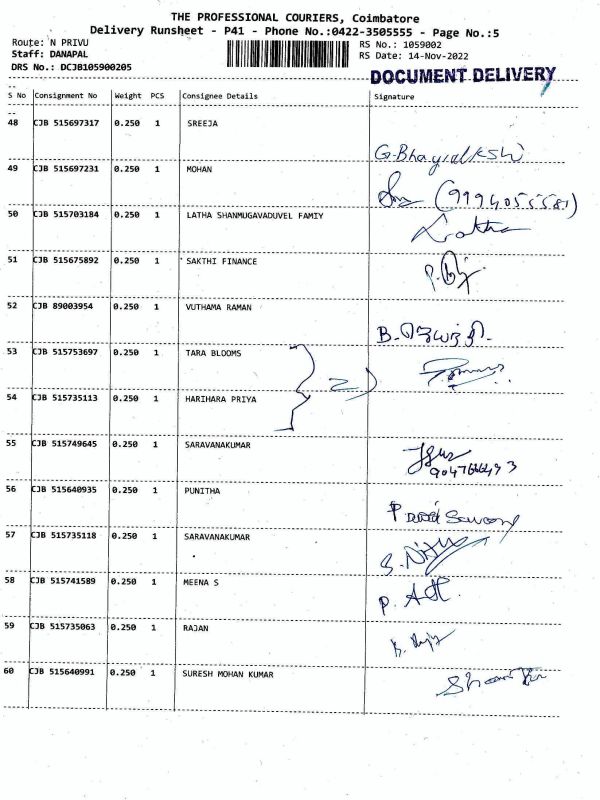 THE PROFESSIONAL COURIERS, Coimbatore
Delivery Runsheet - P41 - Phone No.:0422-3505555 - Page No.:5
Route: N PRIVU
RS No.: 1059002
Staff: DANAPAL
RS Date: 14-Nov-2022
DRS No.: DCJB105900205
DOCUMENT DELIVERY
S No Consignment No Weight PCS Consignee Details Signature
48 CJB 515697317 0.250 1 SREEJA
49 CJB 515697231 0.250 1 MOHAN
(9994055581)
50 CJB 515703184 0.250 1 LATHA SHANMUGAVADUVEL FAMIY
Latha
51 CJB 515675892 0.250 1 SAKTHI FINANCE
52 CJB 89003954 0.250 1 VUTHAMA RAMAN
53 CJB 515753697 0.250 1 TARA BLOOMS
2)
54 CJB 515735113 0.250 1 HARIHARA PRIYA
55 CJB 515749645 0.250 1 SARAVANAKUMAR
56 CJB 515640935 0.250 1 PUNITHA
57 CJB 515735118 0.250 1 SARAVANAKUMAR
58 CJB 515741589 0.250 1 MEENA S
59 CJB 515735063 0.250 1 RAJAN
60 CJB 515640991 0.250 1 SURESH MOHAN KUMAR